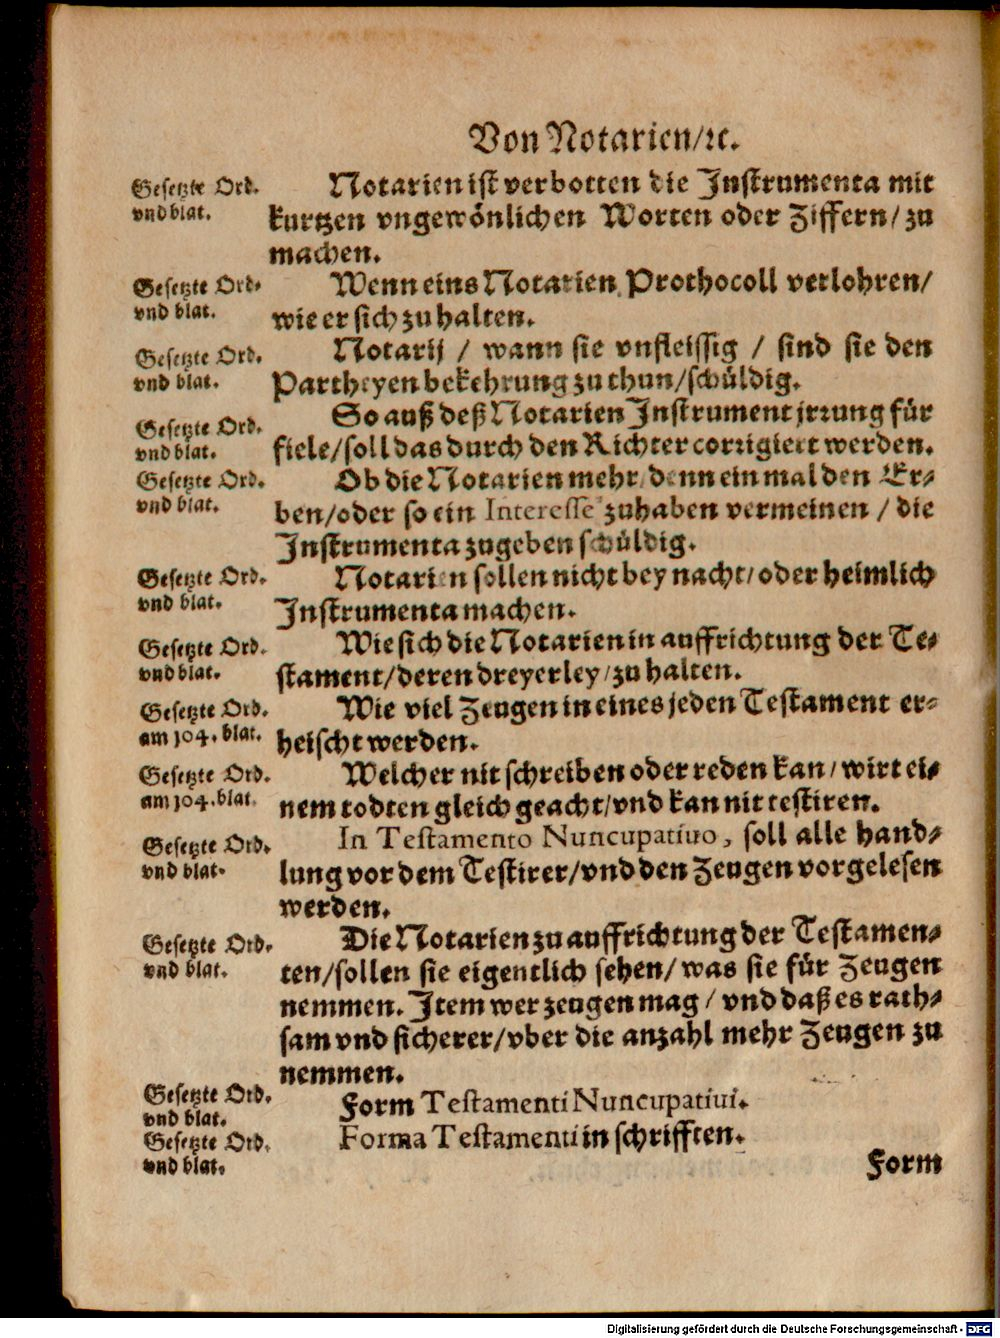 Von Notarien/ꝛc.
Gesetzte Ord.
vnd blat.
Notarien ist verbotten die Instrumenta mit
kurtzen vngewönlichen Worten oder Ziffern/ zu
machen.
Gesetzte Ord.
vnd blat.
Wenn eins Notarien Prothocoll verlohren/
wie er sich zu halten.
Gesetzte Ord.
vnd blat.
Notarij / wann sie vnfleissig / sind sie den
Partheyen bekehrung zu thun/schüldig.
Gesetzte Ord.
vnd blat.
So auß deß Notarien Instrument jrrung für
fiele/soll das durch den Richter corrigiert werden.
Gesetzte Ord.
vnd blat.
Ob die Notarien mehr denn ein mal den Er-
ben/oder so ein Interesse zuhaben vermeinen / die
Instrumenta zugeben schüldig.
Gesetzte Ord.
vnd blat.
Notarien sollen nicht bey nacht/oder heimlich
Instrumenta machen.
Gesetzte Ord.
vnd blat.
Wie sich die Notarien in auffrichtung der Te-
stament/deren dreyerley/zu halten.
Gesetzte Ord.
am 104. blat.
Wie viel Zeugen in eines jeden Testament er-
heischt werden.
Gesetzte Ord.
am 104. blat.
Welcher nit schreiben oder reden kan/ wirt ei-
nem todten gleich geacht/vnd kan nit testiren.
Gesetzte Ord.
vnd blat.
In Testamento Nuncupatiuo, soll alle hand-
lung vor dem Testirer/vnd den Zeugen vorgelesen
werden.
Gesetzte Ord.
vnd blat.
Die Notarien zu auffrichtung der Testamen-
ten/sollen sie eigentlich sehen/ was sie für Zeugen
nemmen. Item wer zeugen mag / vnd daß es rath-
sam vnd sicherer/vber die anzahl mehr Zeugen zu
nemmen.
Gesetzte Ord.
vnd blat.
Form Testamenti Nuncupatiui.
Gesetzte Ord.
vnd blat.
Forma Testamenti in schrifften.
Form
Digitalisierung gefördert durch die Deutsche Forschungsgemeinschaft - DFG